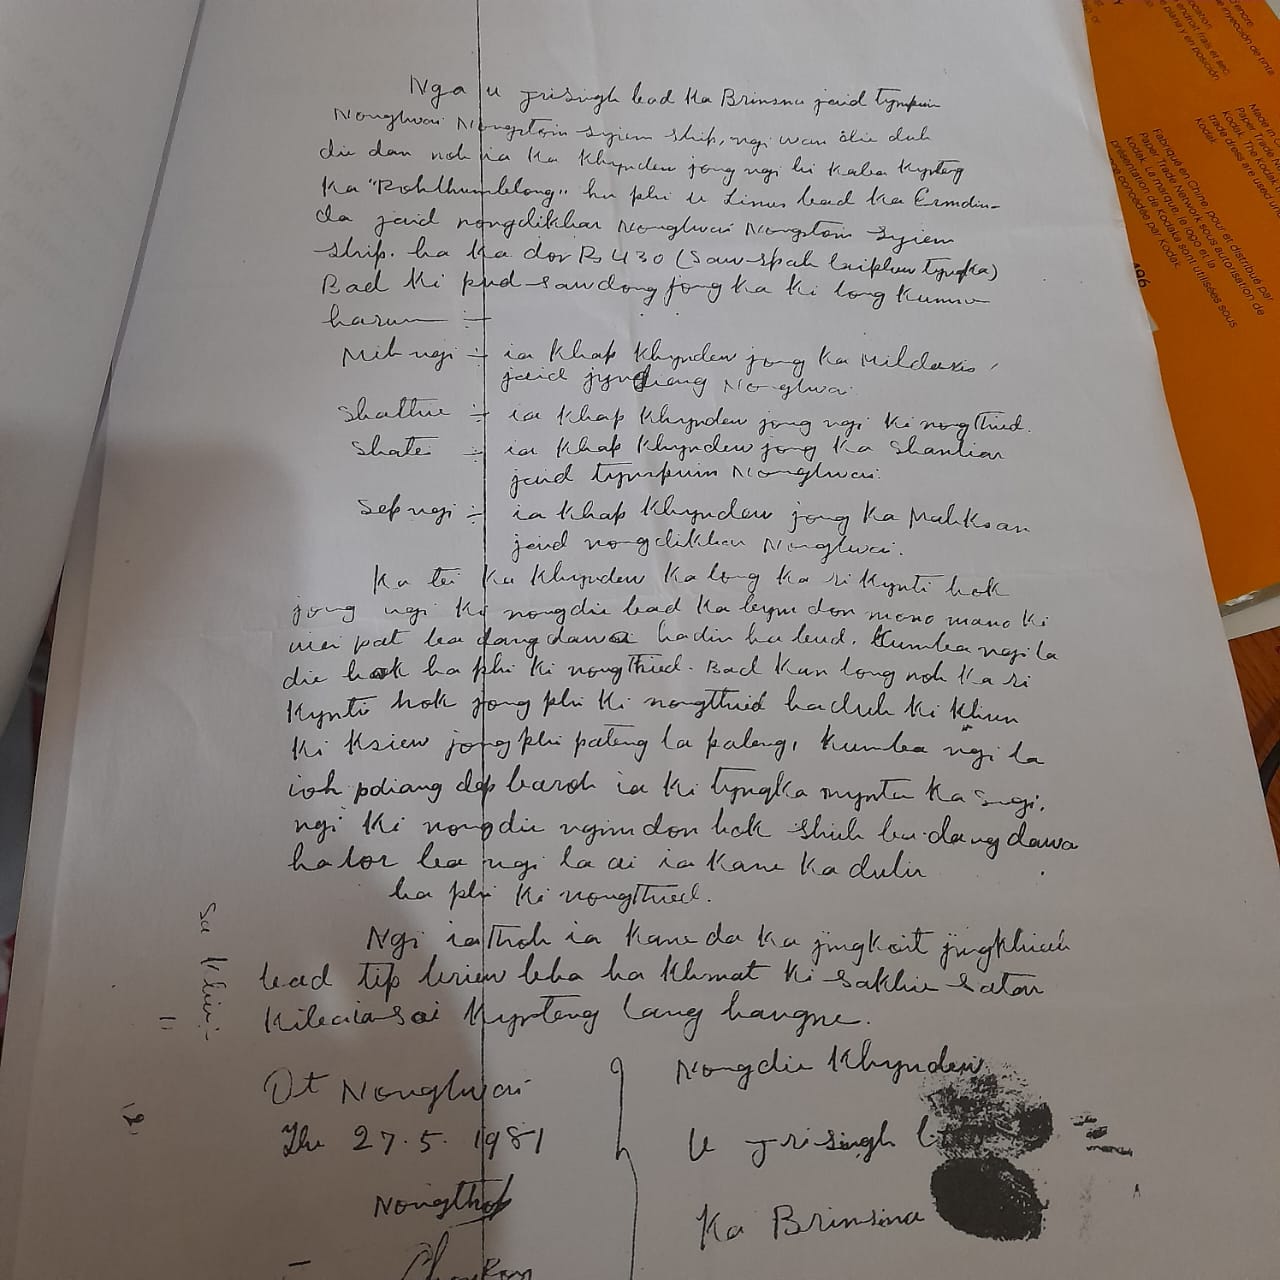 Nga u Jrisingh bad ka Brinsna jaid tympuin
Nonglwai Nongstoin Syiem ship, ngi wan die duh
die dan noh ia ka Khyndew jong ngi hi kaba kyrteng
ka "Rohlhumblong" ha phi u Linus bad ka Ermdin-
da jaid nongdikhar Nonglwai Nongstoin Syiem
ship. ha ka dor Rs 430 (Saw-spah laiphew tyngka)
Bad ki pud-sawdong jong ka ki long kumne
harum :-
Mih ngi :- ia khap khyndew jong ka Mildaris
jaid jyrgiang Nonglwai.
Shathie :- ia khap khyndew jong ngi ki nongthied.
Shatei :- ia khap khyndew jong ka Shantiar
jaid tympuin Nonglwai.
Sep ngi :- ia khap khyndew jong ka Maliksan
jaid nongdikhar Nonglwai.
Ka tei ka khyndew ka long ka ri kynti hok
jong ngi ki nongdie bad ka bym don mano mano ki
wei pat ba dang dawa hadin ha bud. Kumba ngi la
die hok ha phi ki nongthied. Bad kan long noh ka ri
kynti hok jong phi ki nongthied haduh ki khun
ki ksiew jong phi pateng la pateng, kumba ngi la
ioh pdiang dep baroh ia ki tyngka mynta ka sngi.
ngi ki nongdie ngim don hok shuh ba dang dawa
halor ba ngi la ai ia kane ka dulir
ha phi ki nongthied.
Ngi ia thoh ia kane da ka jingkoit jingkhiah
bad tip briew bha ha khmat ki sakhi satar
kibaiasoi kyrteng lang hangne.
Sakhi :-
1)
2)
Dt Nonglwai
The 27.5.1981
Nongthoh
Nongdie Khyndew
U Jrisingh
Ka Brinsina
Made in
Fabriqué en Chine, pour et distribué par
Paper Trade Network sous autorisation de
Kodak. La marque, le logo et la
présentation de Kodak sont utilisées sous
Kodak.